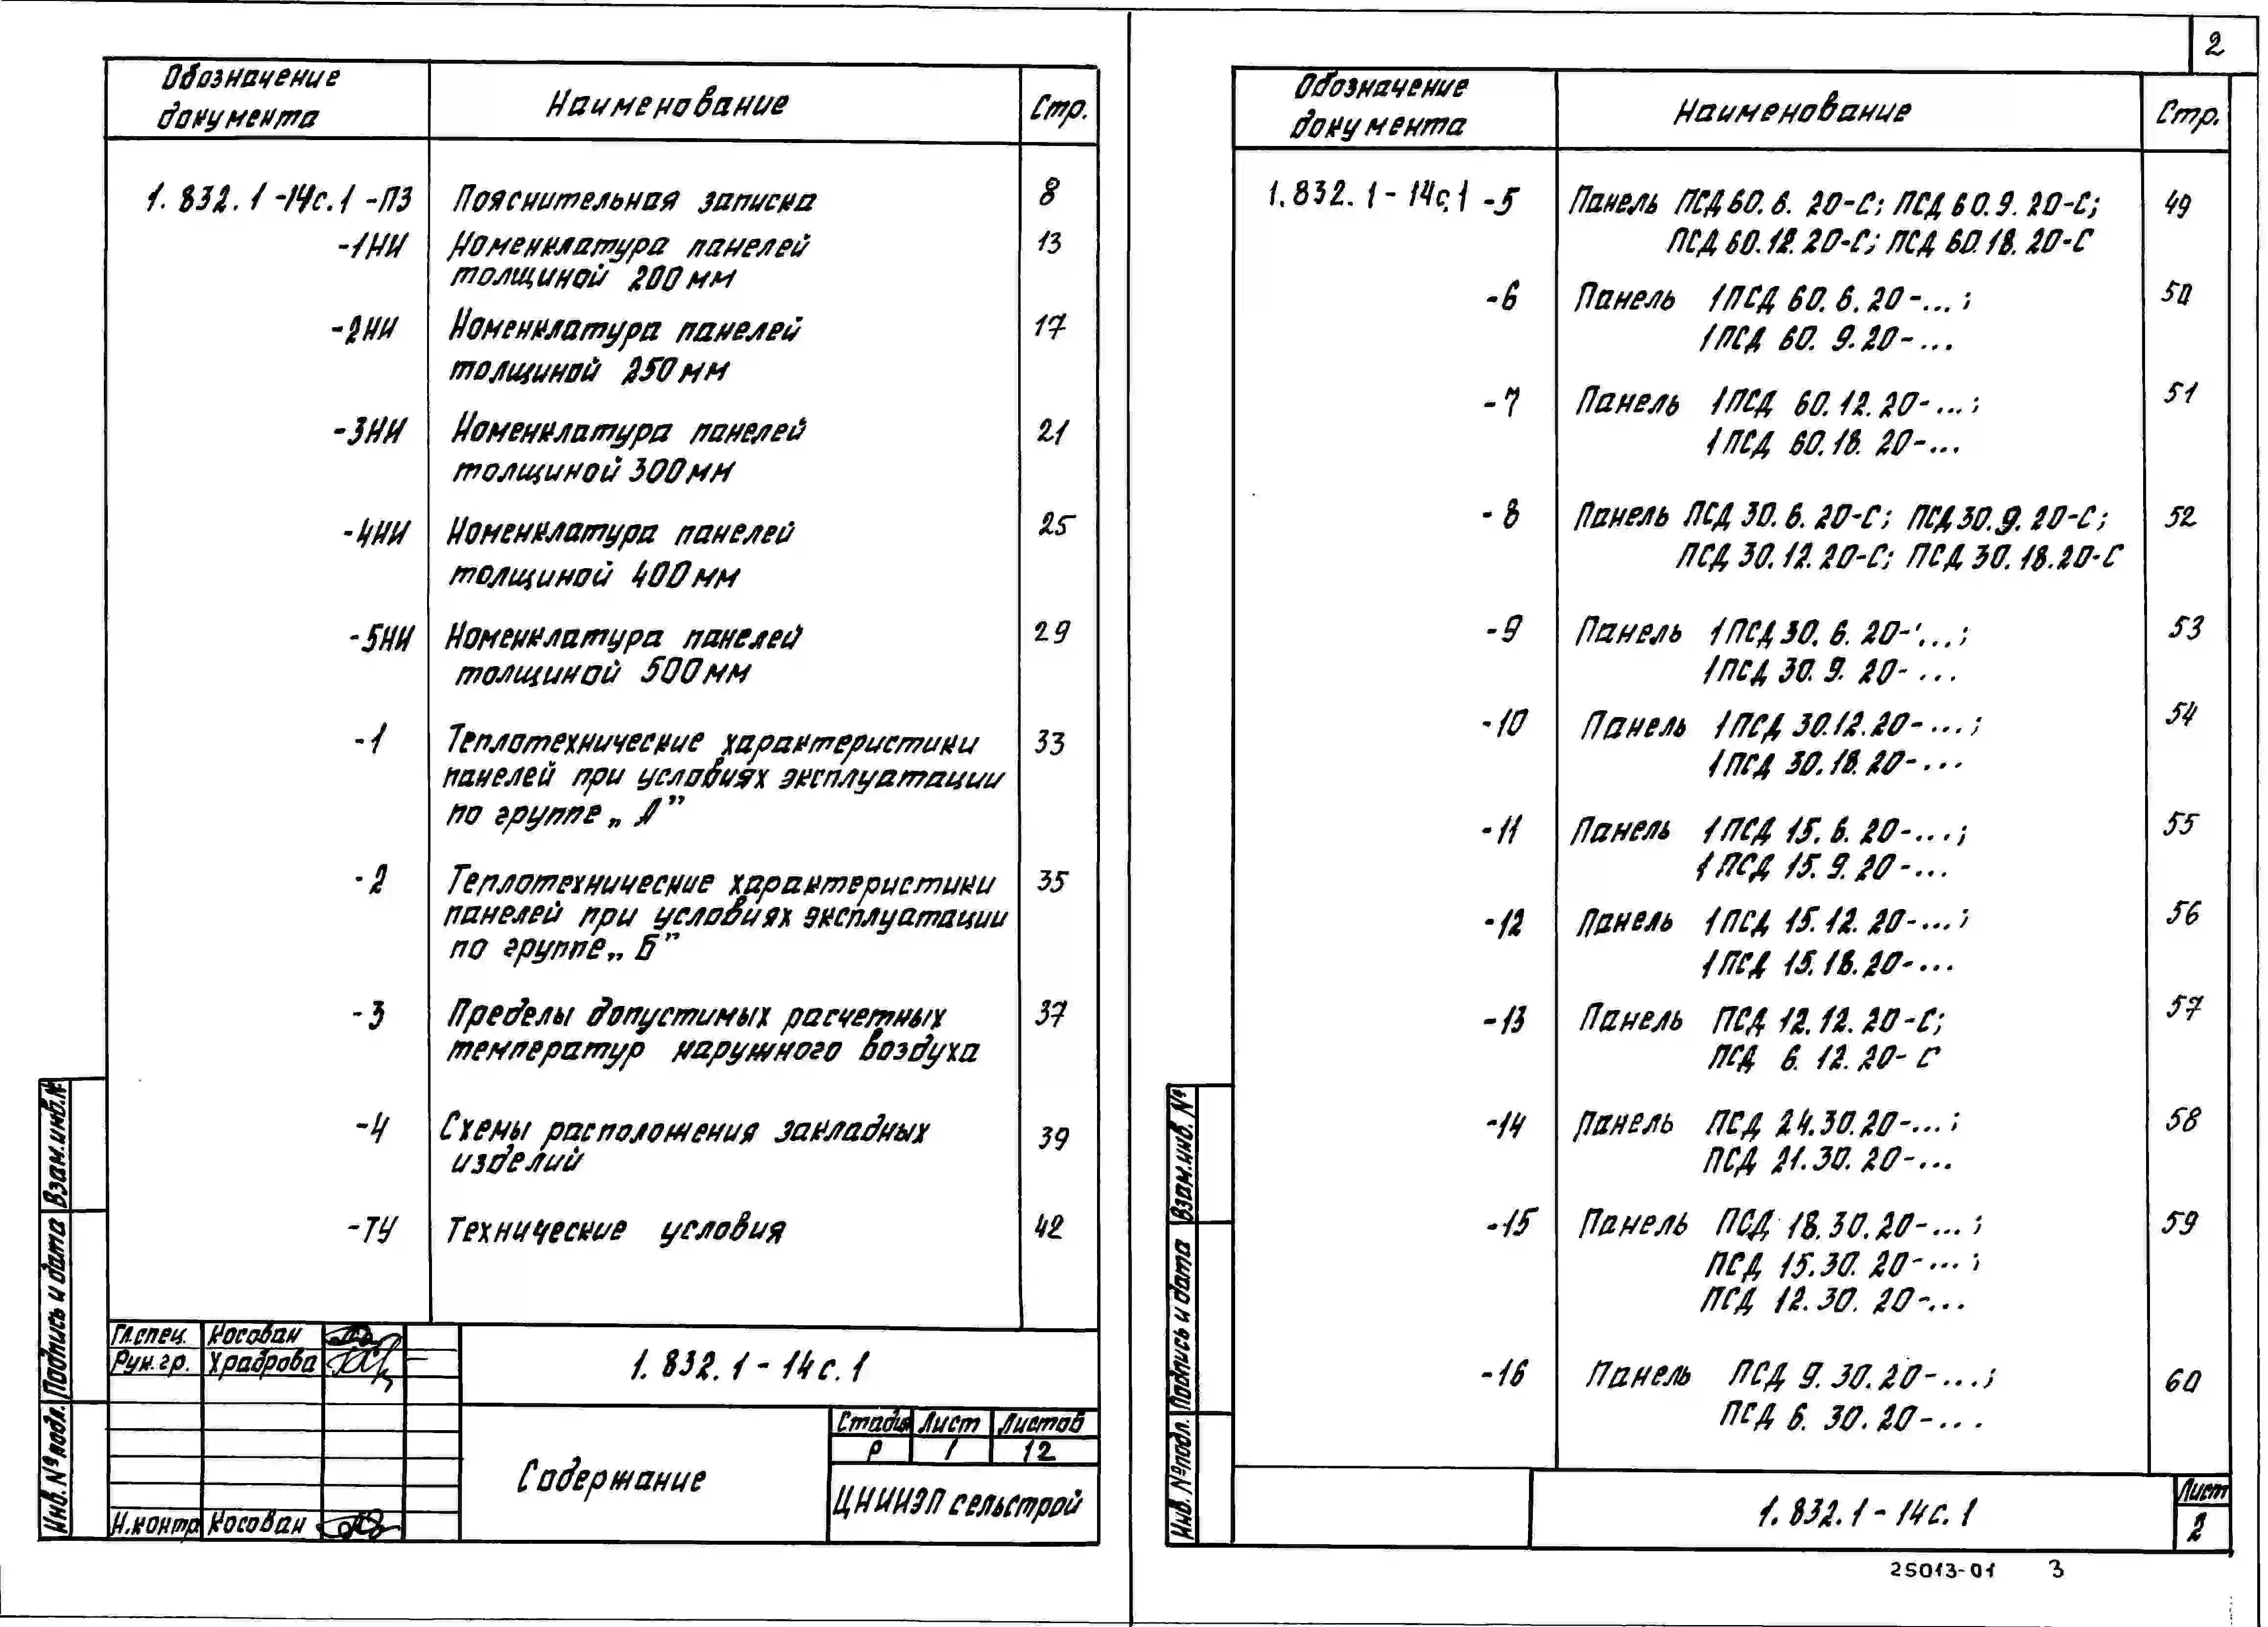 Обозначение документа Наименование Стр.
1.832.1-14с.1 -ПЗ Пояснительная записка 8
-1НИ Номенклатура панелей 13
толщиной 200мм
-2НИ Номенклатура панелей 17
толщиной 250мм
-3НИ Номенклатура панелей 21
толщиной 300мм
-4НИ Номенклатура панелей 25
толщиной 400мм
-5НИ Номенклатура панелей 29
толщиной 500мм
-1 Теплотехнические характеристики 33
панелей при условиях эксплуатации
по группе „А”
-2 Теплотехнические характеристики 35
панелей при условиях эксплуатации
по группе „Б”
-3 Пределы допустимых расчетных 37
температур наружного воздуха
-4 Схемы расположения закладных 39
изделий
-ТУ Технические условия 42
Гл.спец. Косован
Рук.гр. Храброва
Н.контр. Косован
1.832.1-14с.1
Содержание
Стадия Лист Листов
Р 1 12
ЦНИИЭПсельстрой
Взам.инв.№
Подпись и дата
Инв.№подл.
2
Обозначение документа Наименование Стр.
1.832.1-14с.1 -5 Панель ПСД60.6.20-С; ПСД60.9.20-С; 49
ПСД60.12.20-С; ПСД60.18.20-С
-6 Панель 1ПСД60.6.20-...; 50
1ПСД 60.9.20-...
-7 Панель 1ПСД 60.12.20-...; 51
1ПСД 60.18.20-...
-8 Панель ПСД30.6.20-С; ПСД30.9.20-С; 52
ПСД30.12.20-С; ПСД30.18.20-С
-9 Панель 1ПСД30.6.20-...; 53
1ПСД30.9.20-...
-10 Панель 1ПСД30.12.20-...; 54
1ПСД 30.18.20-...
-11 Панель 1ПСД 15.6.20-...; 55
1ПСД 15.9.20-...
-12 Панель 1ПСД 15.12.20-...; 56
1ПСД 15.18.20-...
-13 Панель ПСД 12.12.20-С; 57
ПСД 6.12.20-С
-14 Панель ПСД 24.30.20-...; 58
ПСД 21.30.20-...
-15 Панель ПСД 18.30.20-...; 59
ПСД 15.30.20-...;
ПСД 12.30.20-...
-16 Панель ПСД 9.30.20-...; 60
ПСД 6.30.20-...
1.832.1-14с.1
Лист
2
Взам.инв.№
Подпись и дата
Инв.№подл.
25013-01 3